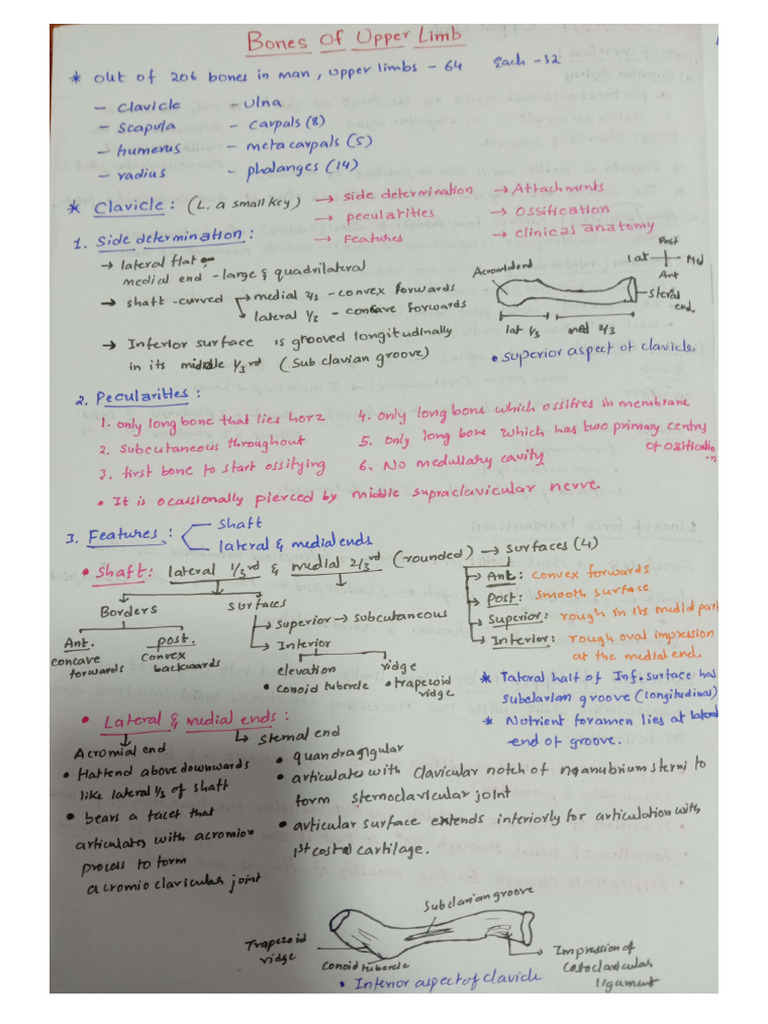 Bones Of Upper Limb
* out of 206 bones in man, upper limbs - 64 Each - 32
- clavicle - ulna
- scapula - carpals (8)
- humerus - metacarpals (5)
- radius - phalanges (14)
* Clavicle : (L. a small key) → side determination → Attachments
→ pecularities → Ossification
→ Features → clinical anatomy
1. Side determination :
→ lateral flat
medial end - large & quadrilateral
→ shaft - curved → medial 2/3 - convex forwards
→ lateral 1/3 - concave forwards
→ Inferior surface is grooved longitudinally
in its middle 1/3rd (Sub clavian groove)
Post
lat Md
Ant
Acromial end
Steral
end.
lat 1/3 med 2/3
• Superior aspect of clavicle.
2. Pecularities :
1. only long bone that lies horz
2. subcutaneous throughout
3. first bone to start ossifying
4. only long bone which ossifies in membrane
5. only long bone which has two primary centres
of ossification
6. No medullary cavity
• It is ocassionally pierced by middle supraclavicular nerve.
3. Features : shaft
lateral & medial ends
• Shaft: lateral 1/3rd & medial 2/3rd (rounded) → surfaces (4)
Borders
Ant. post.
concave forwards
convex backwards
surfaces
→ Superior → subcutaneous
→ Inferior
elevation ridge
• conoid tubercle • trapezoid ridge
→ Ant: convex forwards
→ Post: smooth surface
→ Superior: rough in its medial part
→ Inferior: rough oval impression
at the medial end.
* lateral half of Inf. surface has
subclavian groove (longitudinal)
* Nutrient foramen lies at lateral
end of groove.
• Lateral & medial ends :
Acromial end
• flattend above downwards
like lateral 1/3 of shaft
• bears a facet that
articulates with acromion
process to form
acromio clavicular joint
→ Sternal end
• quandrangular
• articulates with clavicular notch of manubrium sterni to
form sternoclavicular joint
• articular surface extends inferiorly for articulation with
1st costal cartilage.
Subclavian groove
Trapezoid
ridge
Conoid tubercle
Impression of
costoclavicular
ligament
• Inferior aspect of clavicle